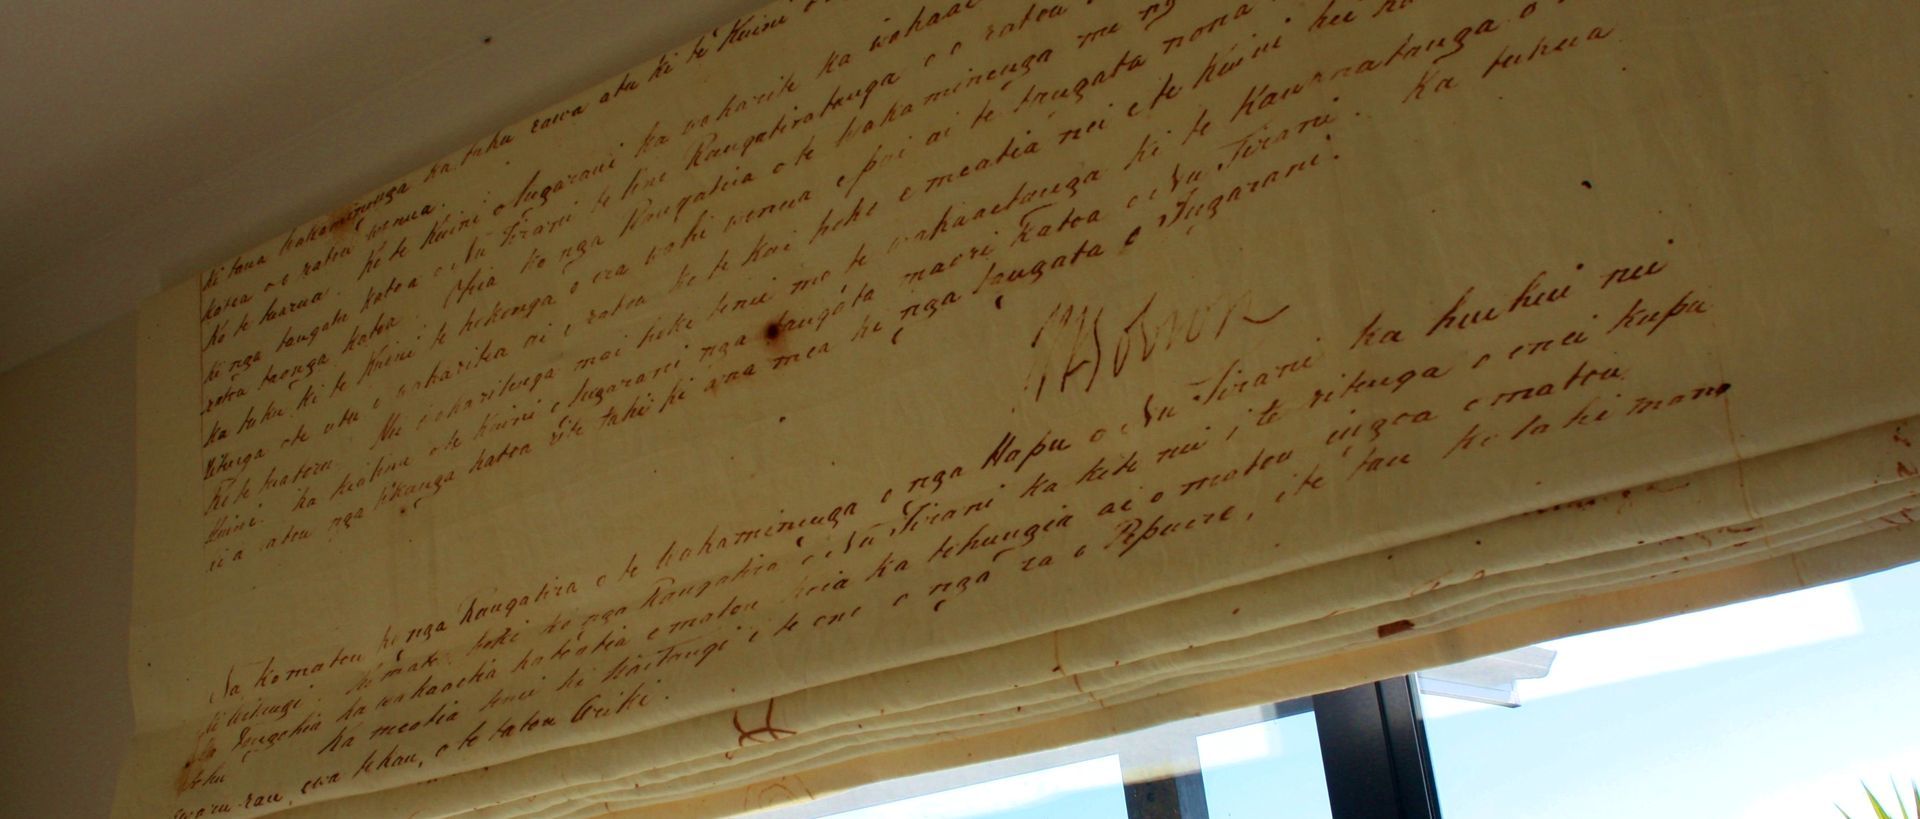 ki taua wakaminenga ka tuku rawa atu ki te Kuini o
katoa o o ratou wenua.
Ko te tuarua. Ko te Kuini o Ingarani ka wakarite ka wakaae
ki nga tangata katoa o Nu Tirani te tino Rangatiratanga o o ratou
ratou taonga katoa. Otiia ko nga Rangatira o te wakaminenga me ng
ka tuku ki te Kuini te hokonga o era wahi wenua e pai ai te tangata nona
ritenga o te utu e wakaritea ai e ratou ko te kai hoko e meatia nei e te Kuini hei
Ko te tuatoru. Hei wakaritenga mai hoki tenei mo te wakaaetanga ki te Kawanatanga o
Kuini. Ka tiakina e te Kuini o Ingarani nga tangata maori katoa o Nu Tirani. Ka tukua
ki a ratou nga tikanga katoa rite tahi ki ana mea ki nga tangata o Ingarani.
W Hobson
Na ko matou ko nga Rangatira o te Wakaminenga o nga Hapu o Nu Tirani ka huihui nei
ki Waitangi. Ko matou hoki ko nga Rangatira o Nu Tirani ka kite nei i te ritenga o enei kupu
Ka tangohia ka wakaaetia katoatia e matou koia ka tohungia ai o matou ingoa o matou
tohu Ka meatia tenei ki Waitangi i te ono o nga ra o Pepuere, i te tau kotahi mano
ewaru rau, ewa tekau, o to tatou Ariki.